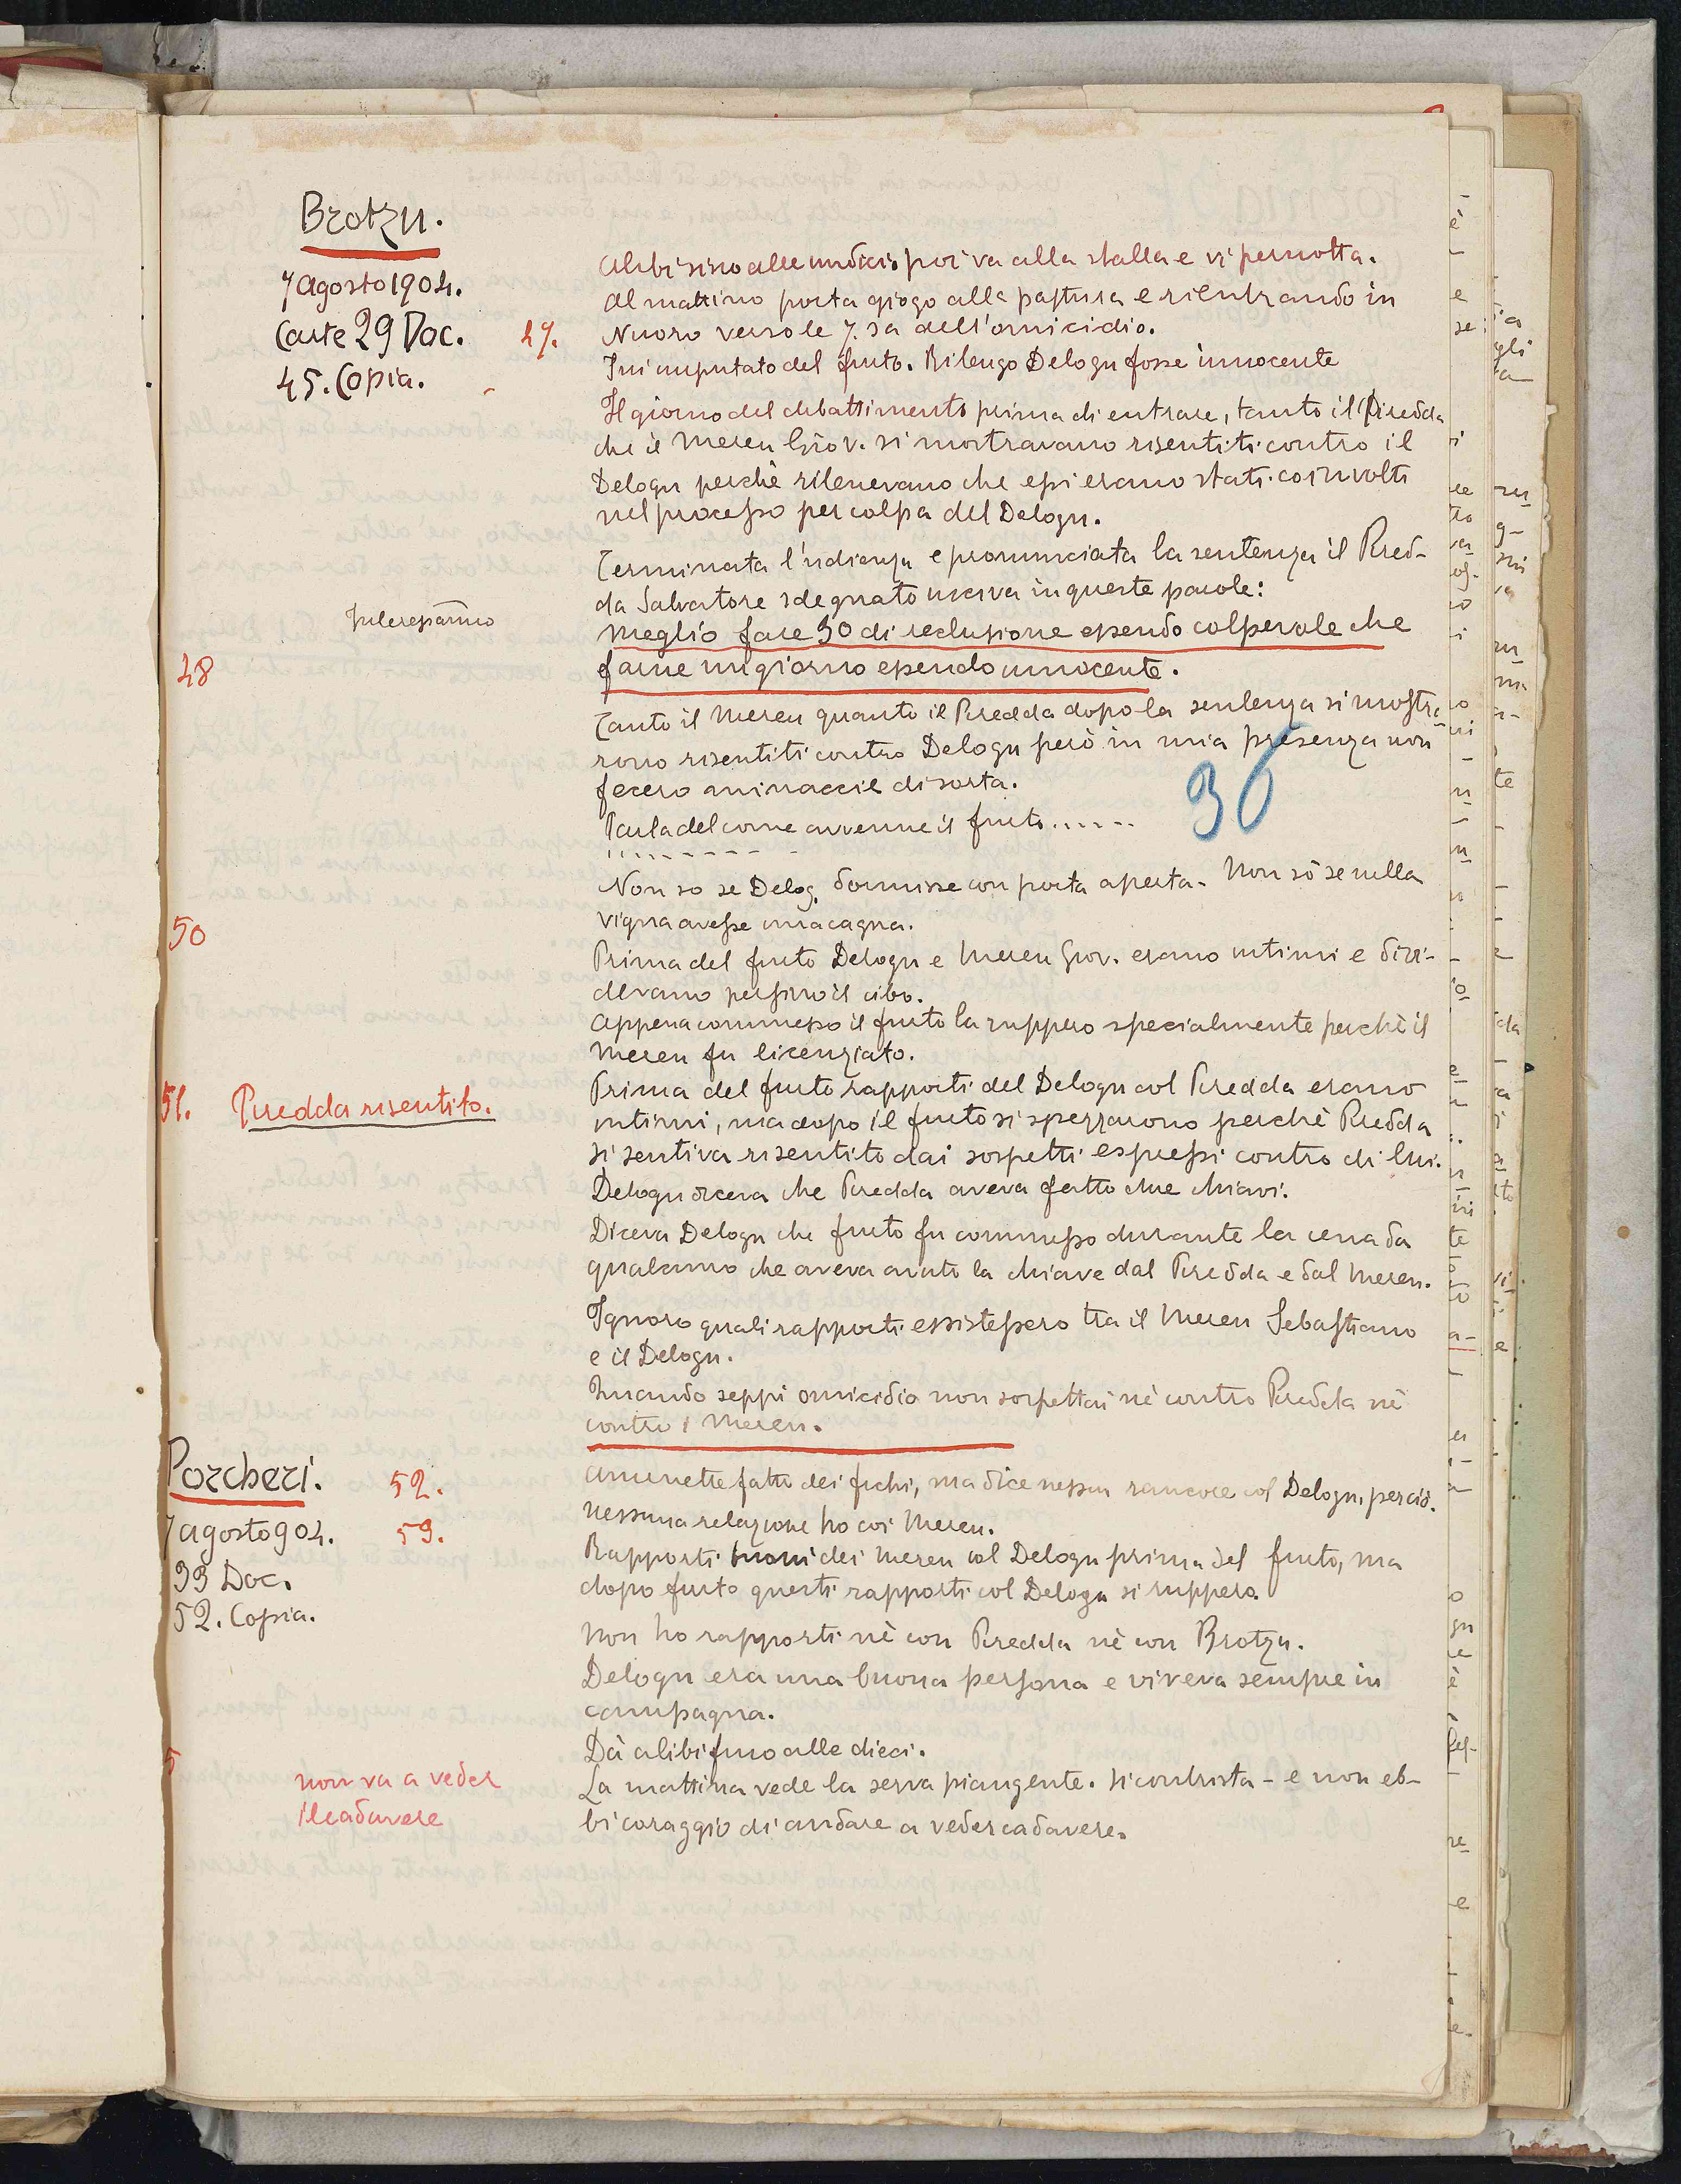 Brotzu.
7 agosto 1904.
Carte 29 Doc.
45. Copia.
27.
Alibi sino alle undici poi va alla stalla e vi pernotta.
Al mattino porta giogo alla pastura e rientrando in
Nuoro verso le 7. sa dell'omicidio.
Fui imputato del furto. Ritengo Delogu fosse innocente
Il giorno del dibattimento prima di entrare, tanto il Piredda
che il Mereu Giov. si mostravano risentiti contro il
Delogu perchè rilenevano che essi erano stati coinvolti
nel processo per colpa del Delogu.
Terminata l'udienza e pronunciata la sentenza il Pired-
da Salvatore sdegnato usciva in queste parole:
28
Meglio fare 30 di reclusione essendo colpevole che
farne un giorno essendo innocente.
Tanto il Mereu quanto il Piredda dopo la sentenza si mostra-
rono risentiti contro Delogu però in mia presenza non
fecero minaccie di sorta.
30
Parla del come avvenne il furto......
Non so se Delog. dormisse con porta aperta. Non sò se nella
vigna avesse una cagna.
50
Prima del furto Delogu e Mereu Giov. erano intimi e divi-
devano persino il cibo.
Appena commesso il furto la ruppero specialmente perchè il
Mereu fu licenziato.
51. Piredda risentito.
Prima del furto rapporti del Delogu col Piredda erano
intimi, ma dopo il furto si spezzarono perchè Piredda
si sentiva risentito dai sospetti espressi contro di lui.
Delogu diceva che Piredda aveva fatto due chiavi.
Diceva Delogu che furto fu commesso durante la cena da
qualcuno che aveva avuto la chiave dal Piredda e dal Mereu.
Ignoro quali rapporti esistessero tra il Mereu Sebastiano
e il Delogu.
Quando seppi omicidio non sospettai nè contro Piredda nè
contro i Mereu.
Porcheri.
7 agosto 904.
33 Doc.
52. Copia.
52.
Ammette fatto dei fichi, ma dice nessun rancore col Delogu, perciò.
Nessuna relazione ho coi Mereu.
53.
Rapporti buoni dei Mereu col Delogu prima del furto, ma
dopo furto questi rapporti col Delogu si ruppero.
Non ho rapporti nè con Piredda nè con Brotzu.
Delogu era una buona persona e viveva sempre in
campagna.
Dà alibi fino alle dieci.
5
non va a veder
il cadavere
La mattina vede la serva piangente. si contrista - e non eb-
bi coraggio di andare a veder cadavere.